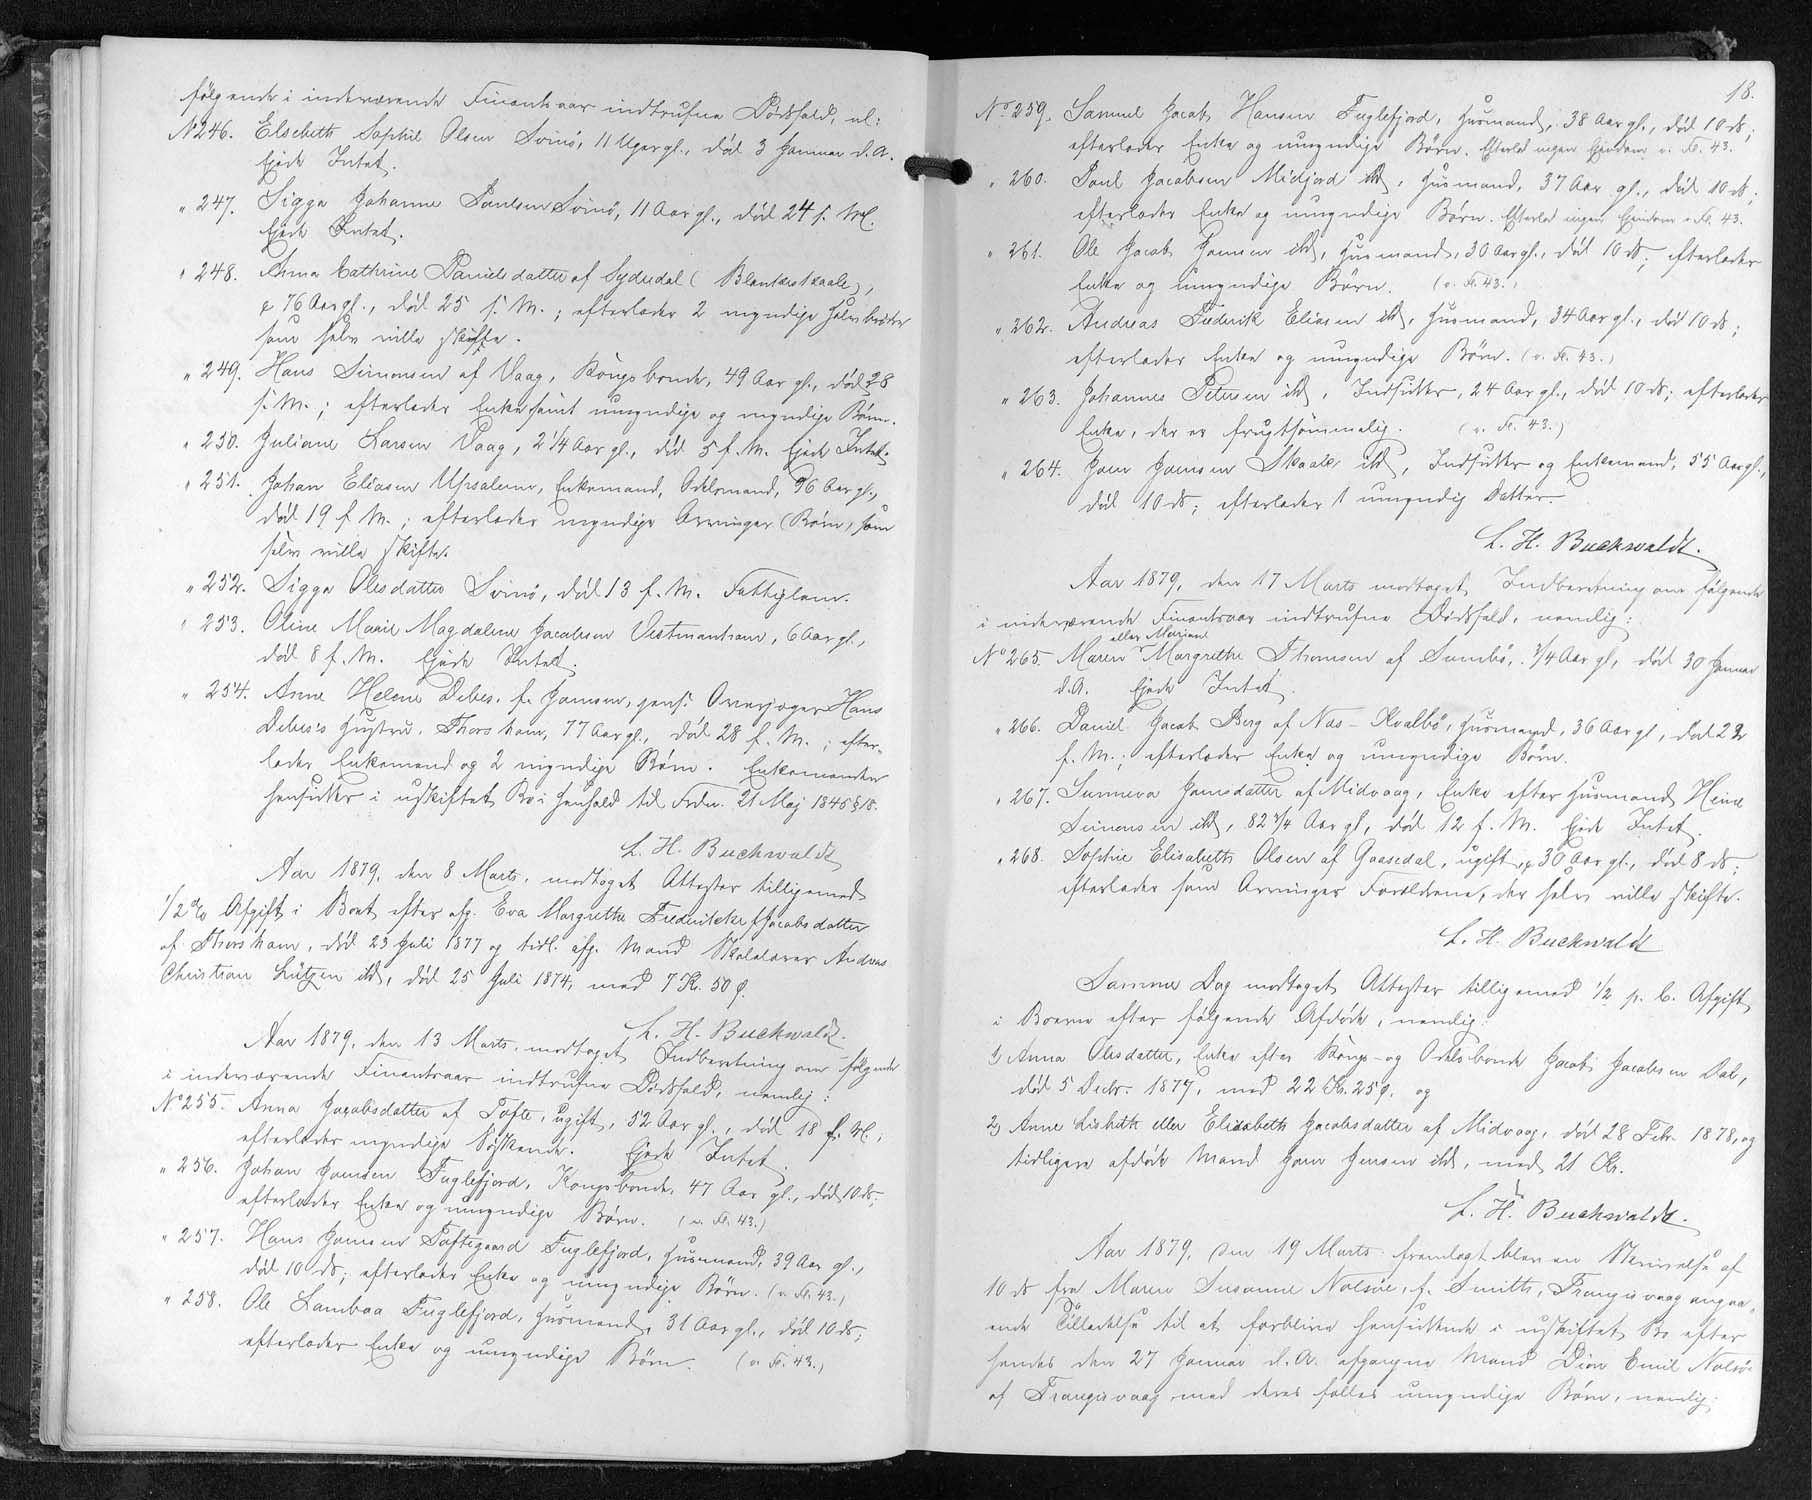 følgende i indeværende Finantsaar indtrufne Dødsfald, nl:
No 246. Elsebeth Sophie Olsen Svinø, 11 Uger gl., død 3 Januar d. A.
Ejede Intet.
" 247. Sigga Johanne Poulsen Svinø, 11 Aar gl., død 24 s. M.
Ejede Intet.
" 248. Anna Cathrine Danielsdatter af Sydredal (Blankeskaale),
76 Aar gl., død 25 s. M.; efterlader 2 myndige Halvbrødre
som selv ville skifte.
" 249. Hans Simonsen af Vaag, Kongsbonde, 49 Aar gl., død 28
s. M.; efterlader Enke samt umyndige og myndige Børn.
" 250. Juliane Larsen Vaag, 2 1/4 Aar gl., død 5 f. M. Ejede Intet.
" 251. Johan Eliasen Upsalum, Enkemand, Odelsmand, 76 Aar gl.,
død 19 f. M.; efterlader myndige Arvinger (Børn) som
selv ville skifte.
" 252. Sigga Olesdatter Svinø, død 13 f. M. Fattiglem.
" 253. Oline Marie Magdalene Jacobsen Vestmanhavn, 6 Aar gl.,
død 8 f. M. Ejede Intet.
" 254. Anne Helene Debes, f. Joensen, Hans
Debes's Hustru, Thorshavn, 77 Aar gl., død 28 f. M.; efter-
lader Enkemand og 2 myndige Børn. Enkemanden
hensidder i uskiftet Bo i Henhold til Frdn. 21 Maj 1845 § 18.
L. H. Buchwaldt
Aar 1879, den 8 Marts, modtaget Attester tilligemed
1/2 % Afgift i Boet efter afg. Eva Margrethe Fredericke f. Jacobsdatter
af Thorshavn, død 23 Juli 1877 og tidl. afg. Mand Skolelærer Andreas
Christian Lützen ibd, død 25 Juli 1874, med 7 Kr. 50 Ø.
L. H. Buchwaldt.
Aar 1879, den 13 Marts, modtaget Indberetning om følgende
i indeværende Finantsaar indtrufne Dødsfald, nemlig:
No 255. Anna Jacobsdatter af Tofte, ugift, 52 Aar gl., død 18 f. M.;
efterlader myndige Søskende. Ejede Intet.
" 256. Johan Joensen Fuglefjord, Kongsbonde, 47 Aar gl., død 10 ds;
efterlader Enke og umyndige Børn. (v. Fl. 43.)
" 257. Hans Joensen Toftegaard Fuglefjord, Husmand, 39 Aar gl.,
død 10 ds; efterlader Enke og umyndige Børn. (v. Fl. 43.)
" 258. Ole Lamhaa Fuglefjord, Husmand, 31 Aar gl., død 10 ds;
efterlader Enke og umyndige Børn. (v. Fl. 43.)
18.
No 259. Samuel Jacob Hansen Fuglefjord, Husmand, 38 Aar gl., død 10 ds;
efterlader Enke og umyndige Børn. Efterlod ingen Ejendom v. Fl. 43.
" 260. Poul Jacobsen Midjord ibd, Husmand, 37 Aar gl., død 10 ds;
efterlader Enke og umyndige Børn. Efterlod ingen Ejendom v. Fl. 43.
" 261. Ole Jacob Joensen ibd, Husmand, 30 Aar gl., død 10 ds; efterlader
Enke og umyndige Børn. (v. Fl. 43.)
" 262. Andreas Frederik Eliasen ibd, Husmand, 34 Aar gl., død 10 ds;
efterlader Enke og umyndige Børn. (v. Fl. 43.)
" 263. Johannes Petersen ibd, Indsidder, 24 Aar gl., død 10 ds; efterlader
Enke, der er frugtsommelig. (v. Fl. 43.)
" 264. Joen Joensen Skaale ibd, Indsidder og Enkemand, 55 Aar gl.,
død 10 ds; efterlader 1 umyndig Datter.
L. H. Buchwaldt.
Aar 1879, den 17 Marts modtaget Indberetning om følgende
i indeværende Finantsaar indtrufne Dødsfald, nemlig:
eller Mariane
No 265. Maren Margrethe Thomsen af Sumbø, 3/4 Aar gl., død 30 Januar
d. A. Ejede Intet.
" 266. Daniel Jacob Berg af Næs - Kvalbø, Husmand, 36 Aar gl, død 22
f. M.; efterlader Enke og umyndige Børn.
" 267. Sunneva Joensdatter af Midvaag, Enke efter Husmand Heine
Simonsen ibd, 82 3/4 Aar gl, død 12 f. M. Ejede Intet.
" 268. Sophie Elisabeth Olsen af Gaasedal, ugift, 30 Aar gl., død 8 ds;
efterlader som Arvinger Forældrene, der selv ville skifte.
L. H. Buchwaldt
Samme Dag modtaget Attester tilligemed 1/2 p. C. Afgift
i Boerne efter følgende Afdøde, nemlig:
1) Anna Olesdatter, Enke efter Kongs- og Odelsbonde Jacob Jacobsen Dal,
død 5 Decbr. 1877, med 22 Kr. 25 Ø. og
2) Anne Lisbeth eller Elisabeth Jacobsdatter af Midvaag, død 28 Febr. 1878, og
tidligere afdøde Mand Joen Jensen ibd, med 21 Kr.
L. H. Buchwaldt.
Aar 1879, den 19 Marts fremlagt blev en Skrivelse af
10 ds fra Maren Susanne Nolsøe, f. Smith, Trangisvaag angaa-
ende Tilladelse til at forblive hensiddende i uskiftet Bo efter
hendes den 27 Januar d. A. afgangne Mand Dion Emil Nolsøe
af Trangisvaag med deres fælles umyndige Børn, nemlig: